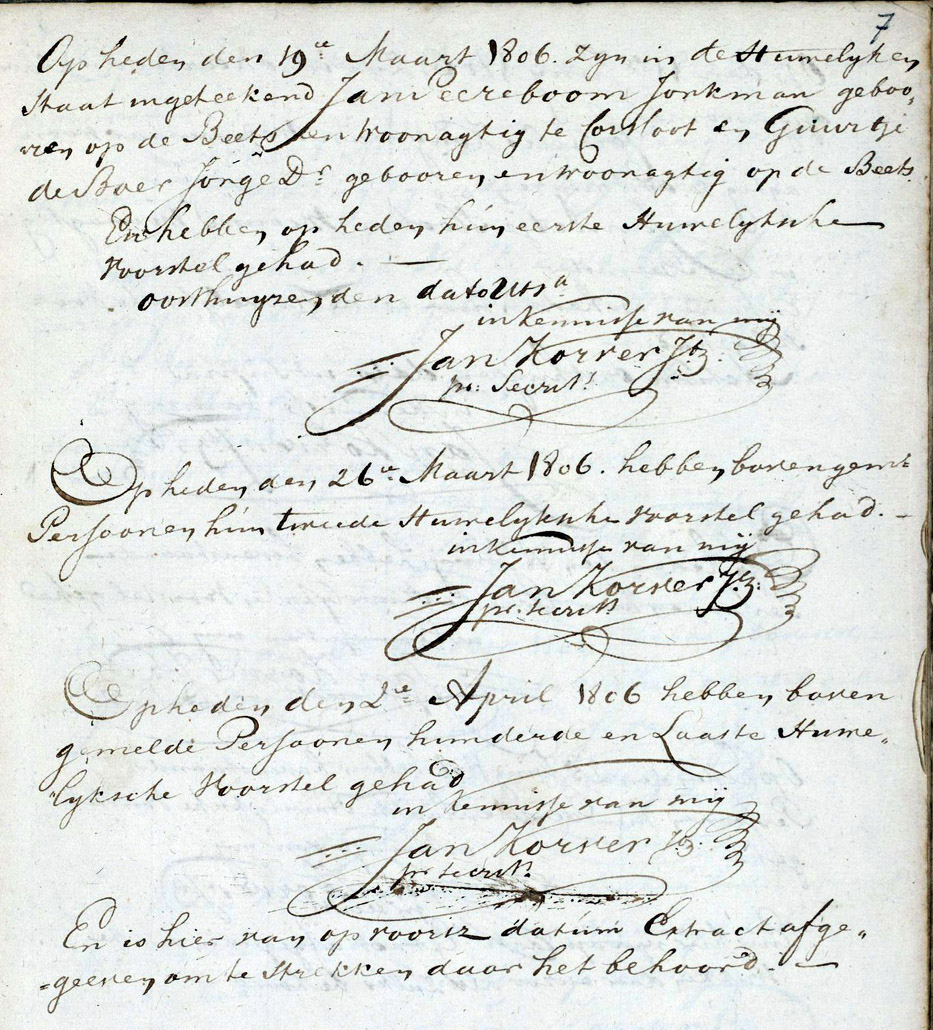 7
Op heden den 19ce Maart 1806. Zyn in de Huwelyken
Staat ingeteekend Jan Peereboom Jonkman geboo„
ren op de Beets en Woonagtig te Oosthoot en Guurtje
de Boer Jonge Dr. gebooren en woonagtig op de Beets.
En hebben op heden hún eerste Huwelyksche
Voorstel gehad. —
Oosthuyzen den dato utsa
in kennisse van mij
Jan Korver Jz.
pr: Secrets.
Op heden den 26ce Maart 1806. hebben boven gemte
Persoonen hún tweede Huwelyksche voorstel gehad. —
in kennisse van mij
Jan Korver Jz:
pr. Secrets
Op heden den 2ce April 1806 hebben boven
gemelde Persoonen hún derde en Laaste Huwe„
lyksche Voorstel gehad
in kennisse van mij
Jan Korver Jz.
pr Secrets.
En is hier van op voorsz datúm Extract afge„
„geeven om te Strekken daar het behoord. —